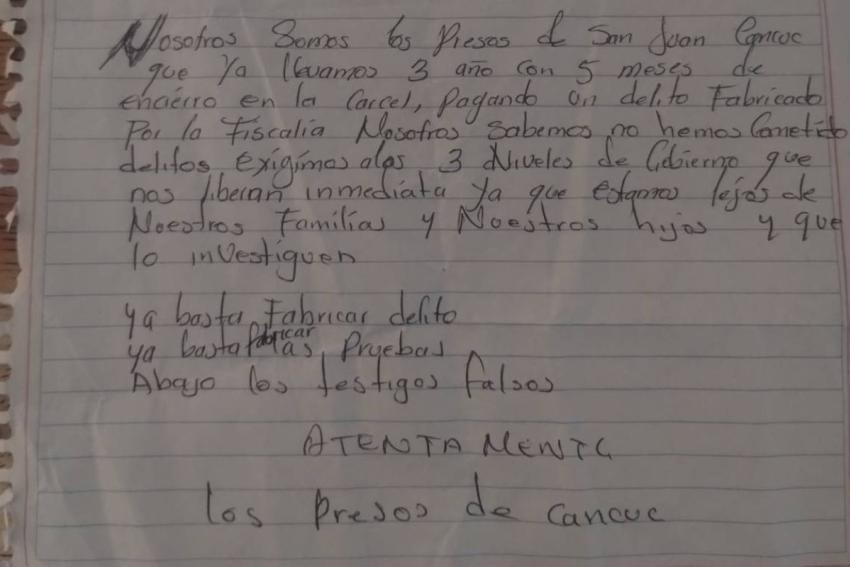 Nosotros Somos los Presos de San Juan Cancuc
que Ya llevamos 3 año con 5 meses de
encierro en la Carcel, Pagando un delito Fabricado
Por la Fiscalía Nosotros Sabemos no hemos Cometido
delitos Exigimos alos 3 Niveles de Gobierno que
nos liberan inmediata Ya que estamos lejos de
Nuestros Familias y Nuestros hijos y que
lo investiguen
ya basta Fabricar delito
ya basta fabricar las Pruebas
Abajo los testigos falsos
ATENTA MENTE
los Presos de Cancuc